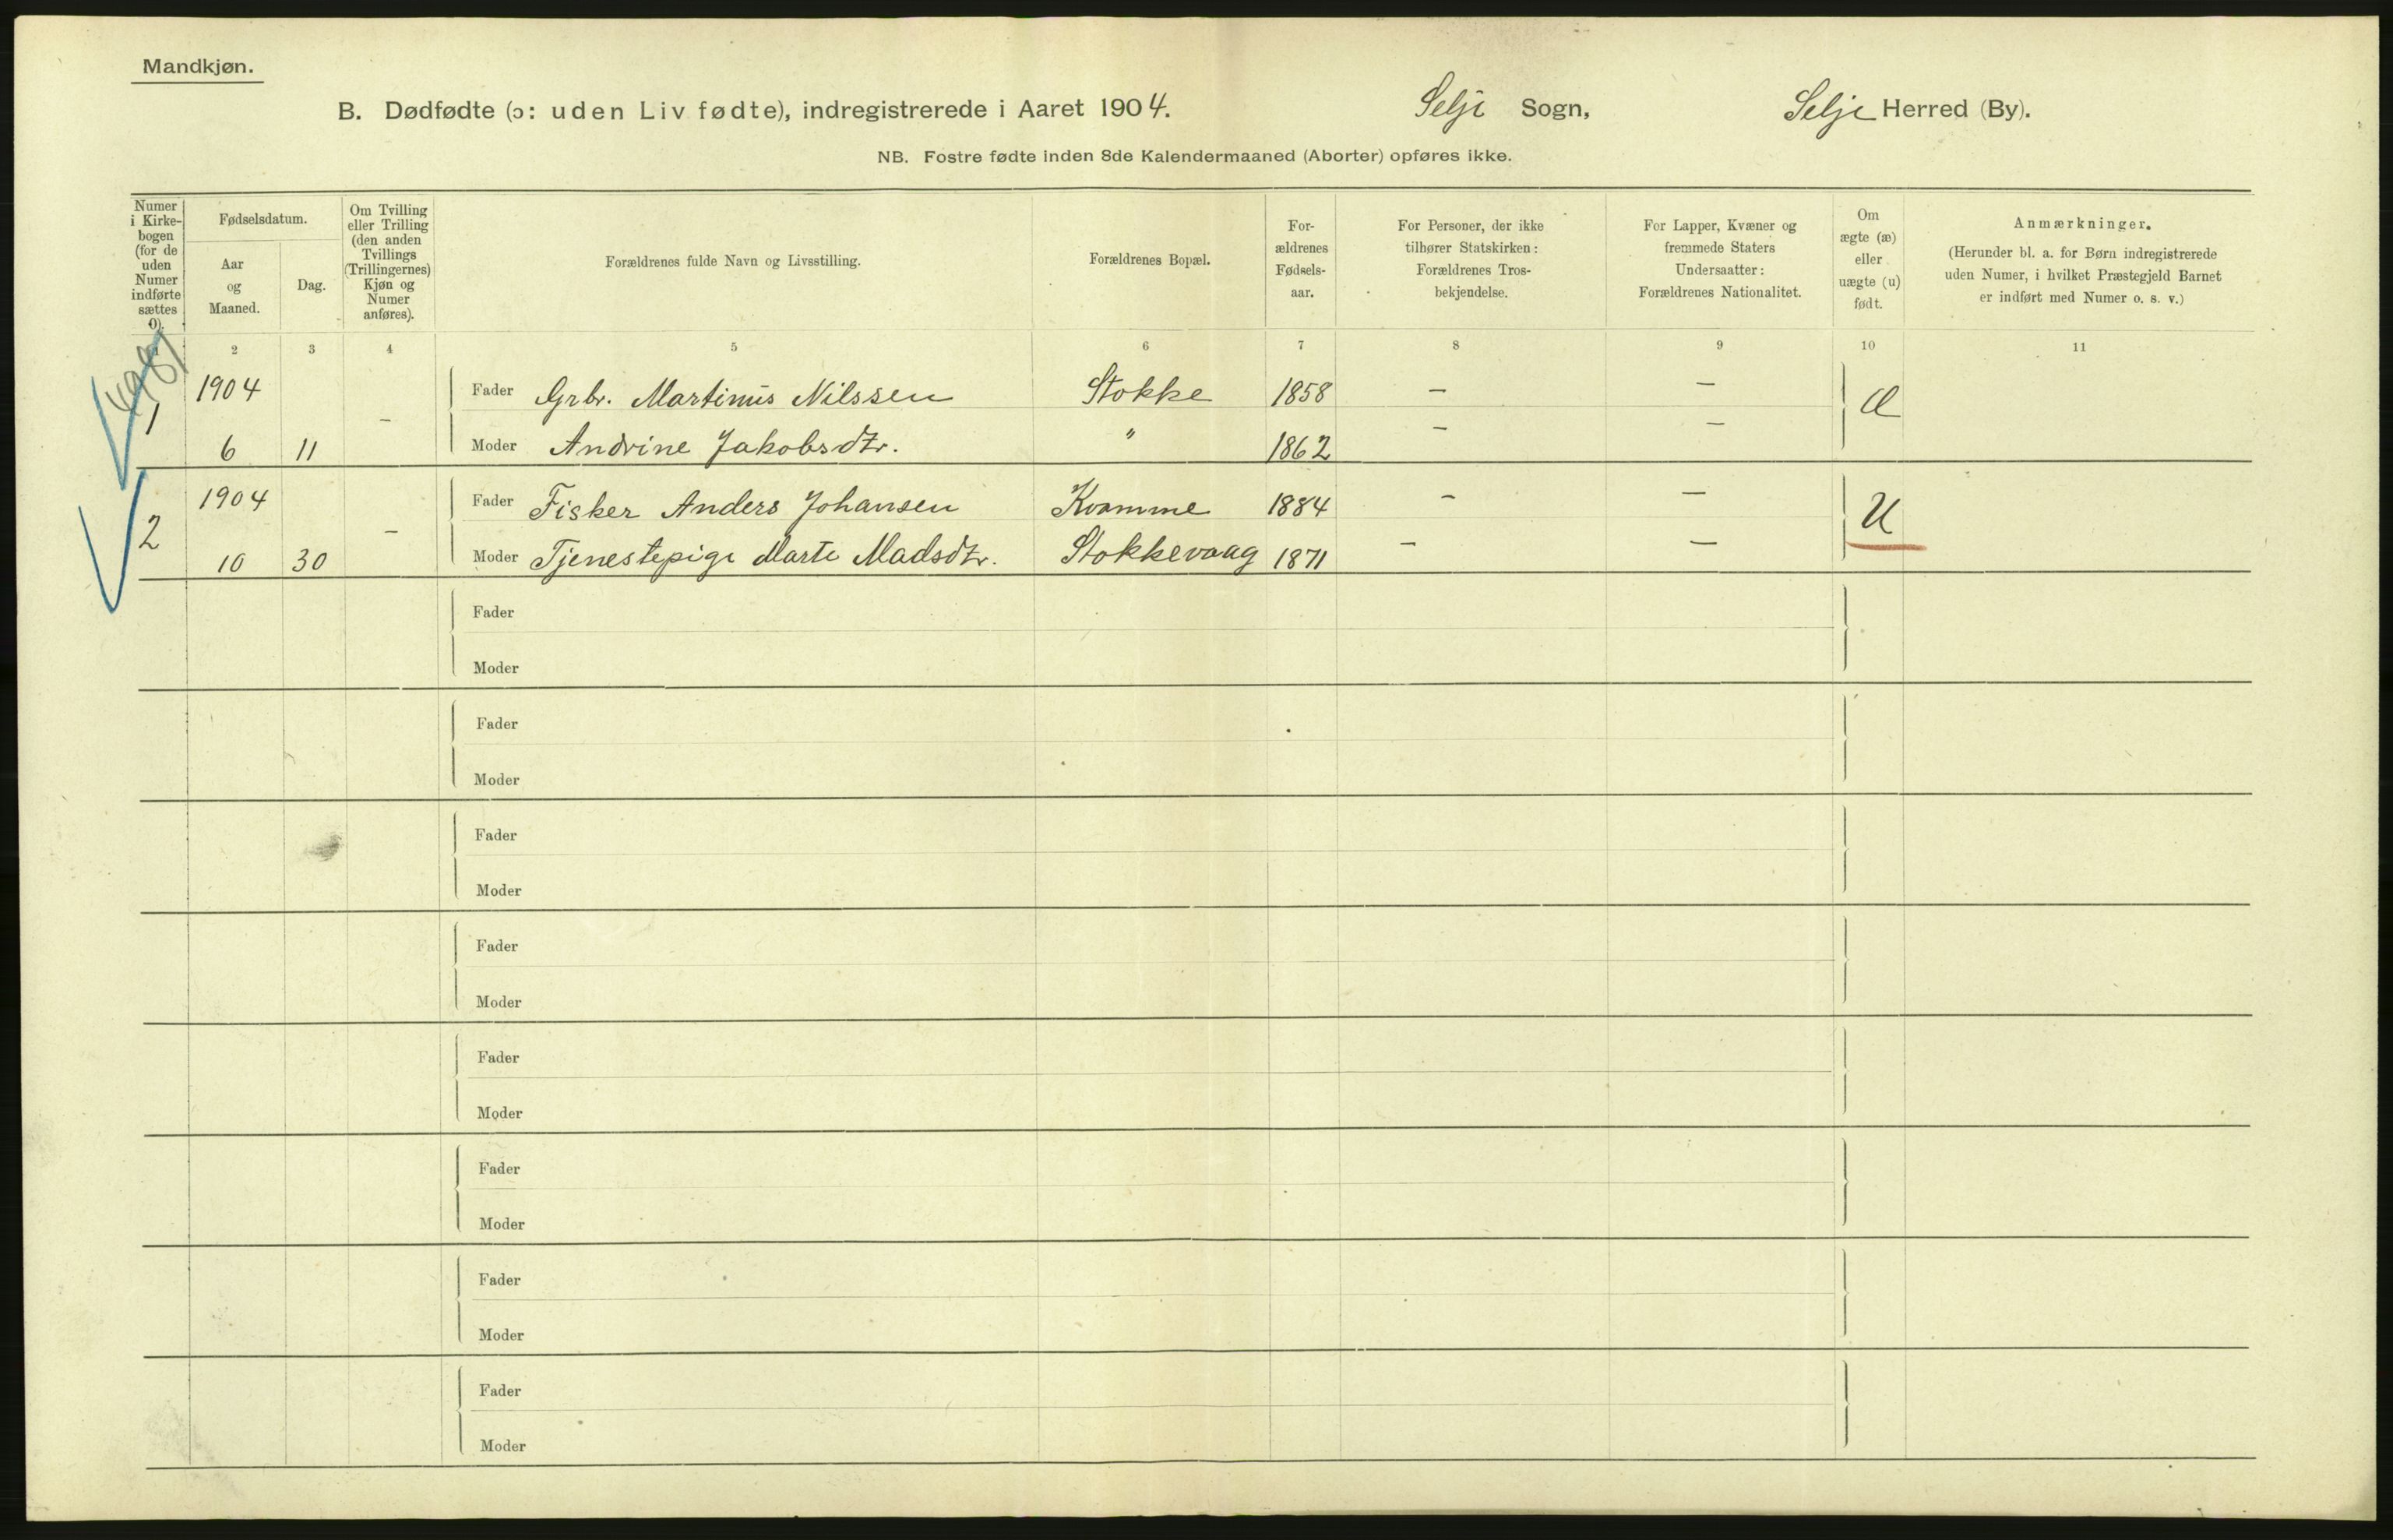 Mandkjøn.
B. Dødfødte (ɔ: uden Liv fødte), indregistrerede i Aaret 1904. Selje Sogn, Selje Herred (By).
NB. Fostre fødte inden 8de Kalendermaaned (Aborter) opføres ikke.
Numer
i Kirke-
bogen
(for de
uden
Numer
indførte
sættes
0).
Fødselsdatum.
Aar
og
Maaned.
Dag.
Om Tvilling
eller Trilling
(den anden
Tvillings
(Trillingernes)
Kjøn og
Numer
anføres).
Forældrenes fulde Navn og Livsstilling.
Forældrenes Bopæl.
For-
ældrenes
Fødsels-
aar.
For Personer, der ikke
tilhører Statskirken:
Forældrenes Tros-
bekjendelse.
For Lapper, Kvæner og
fremmede Staters
Undersaatter:
Forældrenes Nationalitet.
Om
ægte (æ)
eller
uægte (u)
født.
Anmærkninger.
(Herunder bl. a. for Børn indregistrerede
uden Numer, i hvilket Præstegjeld Barnet
er indført med Numer o. s. v.)
2 3 4 5 6 7 8 9 10 11
1904 Fader Grbr. Martinus Nilssen Stokke 1858 — —
1 — Æ
6 11 Moder Andrine Jakobsdtr. " 1862 — —
1904 Fader Fisker Anders Johansen Kvamme 1884 — —
2 — U
10 30 Moder Tjenestepige Marte Madsdtr. Stokkevaag 1871 — —
Fader
Moder
Fader
Moder
Fader
Moder
Fader
Moder
Fader
Moder
Fader
Moder
Fader
Moder
Fader
Moder